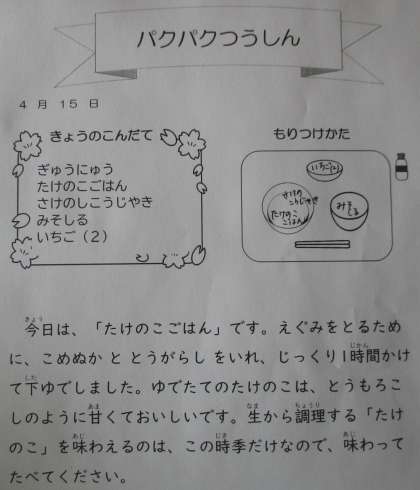 パクパクつうしん
4 月 15 日
きょうのこんだて
ぎゅうにゅう
たけのこごはん
さけのしこうじやき
みそしる
いちご(2)
もりつけかた
いちご(2)
さけの
こうじやき
たけのこ
ごはん
みそしる
今日は、「たけのこごはん」です。えぐみをとるため
に、こめぬか と とうがらし をいれ、じっくり1時間かけ
て下ゆでしました。ゆでたてのたけのこは、とうもろこ
しのように甘くておいしいです。生から調理する「たけ
のこ」を味わえるのは、この時季だけなので、味わって
たべてください。